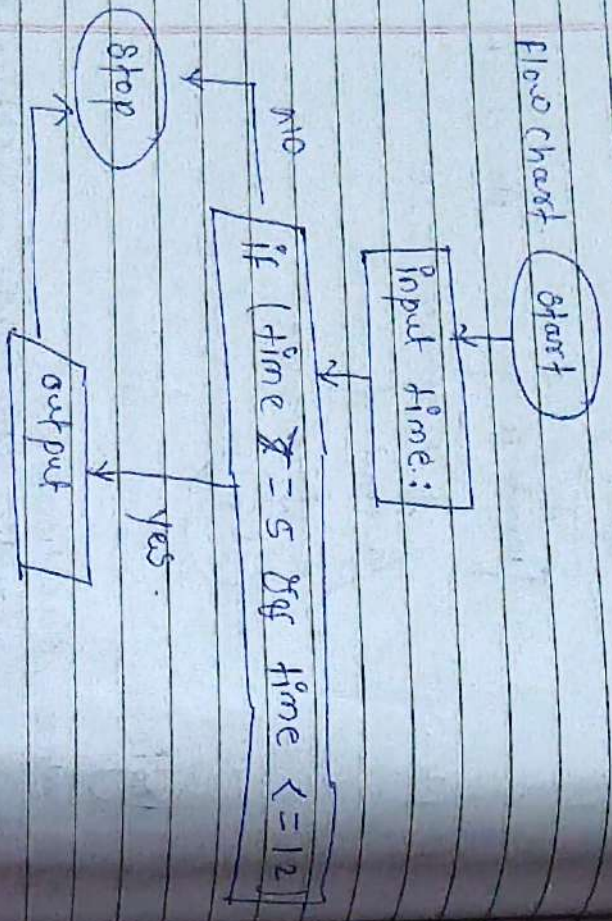 flow chart
start
input time:
if (time >= 5 && time <= 12)
No
Yes.
output
stop